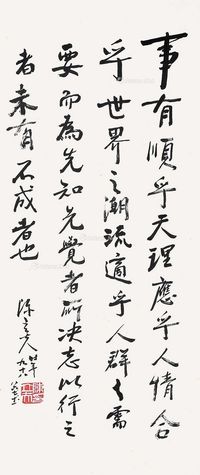 事有順乎天理應乎人情合
乎世界之潮流適乎人群之需
要而為先知先覺者所決志以行之
者未有不成者也
陳立夫
時年九十